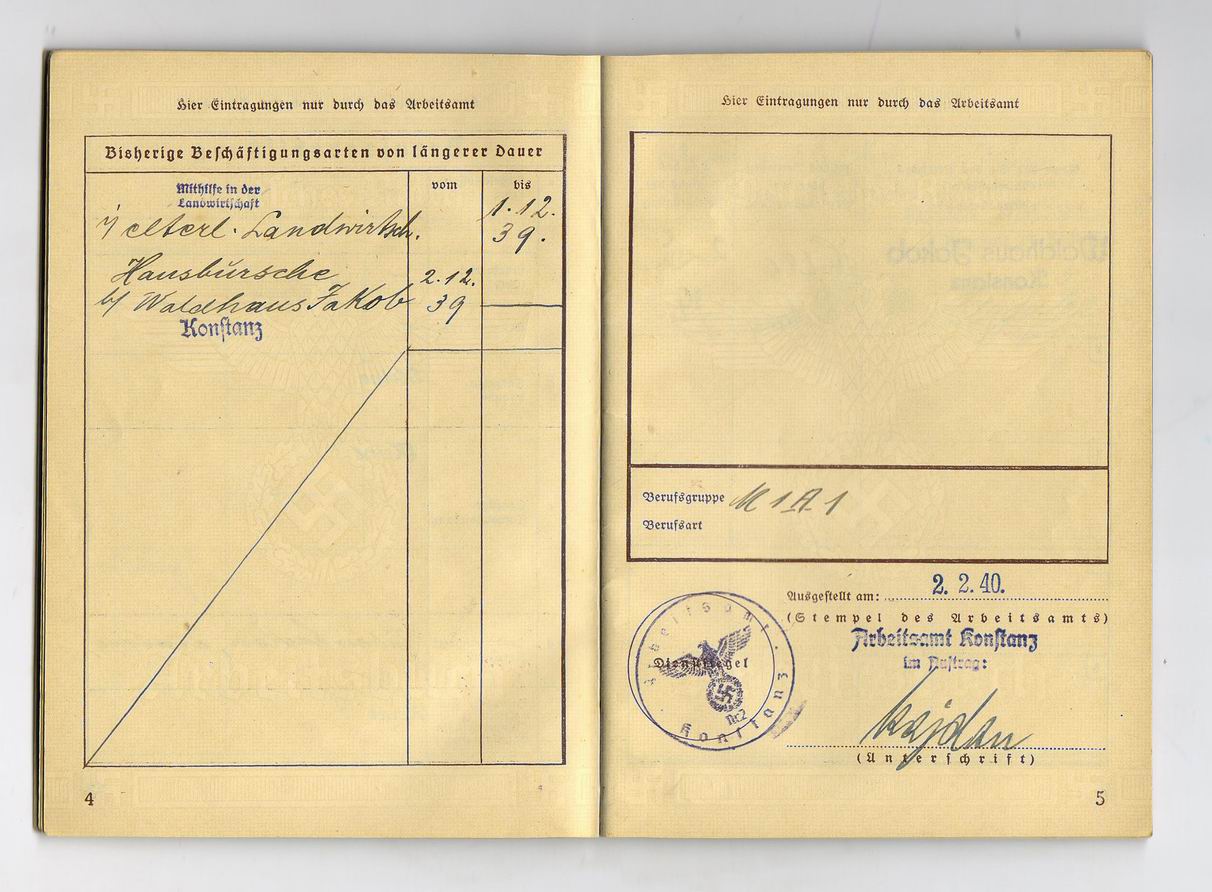 Hier Eintragungen nur durch das Arbeitsamt
Bisherige Beschäftigungsarten von längerer Dauer
vom
bis
Mithilfe in der
Landwirtschaft
i/ elterl. Landwirtsch.
1.12.
39.
Hausbursche
2.12.
b/ Waldhaus Jakob
39
Konstanz
4
Hier Eintragungen nur durch das Arbeitsamt
Berufsgruppe M 1 A 1
Berufsart
Ausgestellt am: 2. 2. 40.
(Stempel des Arbeitsamts)
Arbeitsamt Konstanz
im Auftrag:
Arbeitsamt
Dienstsiegel
Nr. 2
Konstanz
(Unterschrift)
5